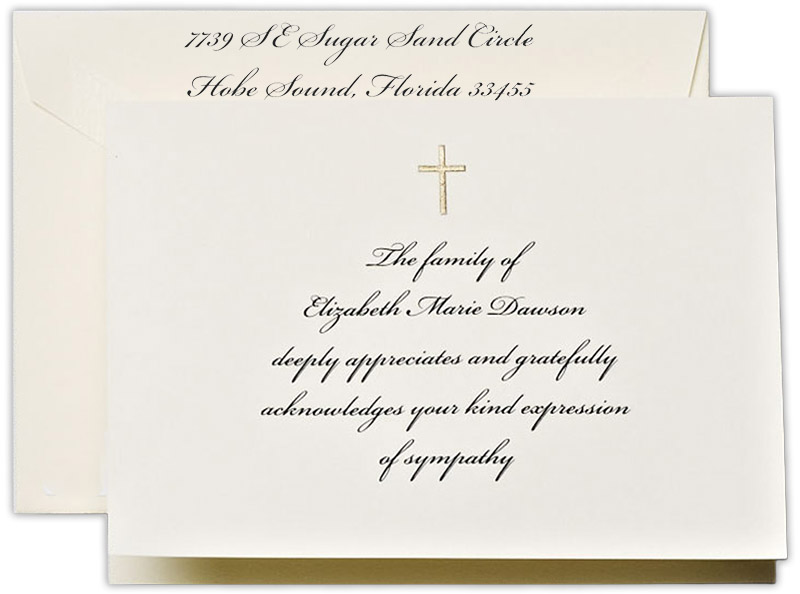 7739 SE Sugar Sand Circle
Hobe Sound, Florida 33455
The family of
Elizabeth Marie Dawson
deeply appreciates and gratefully
acknowledges your kind expression
of sympathy